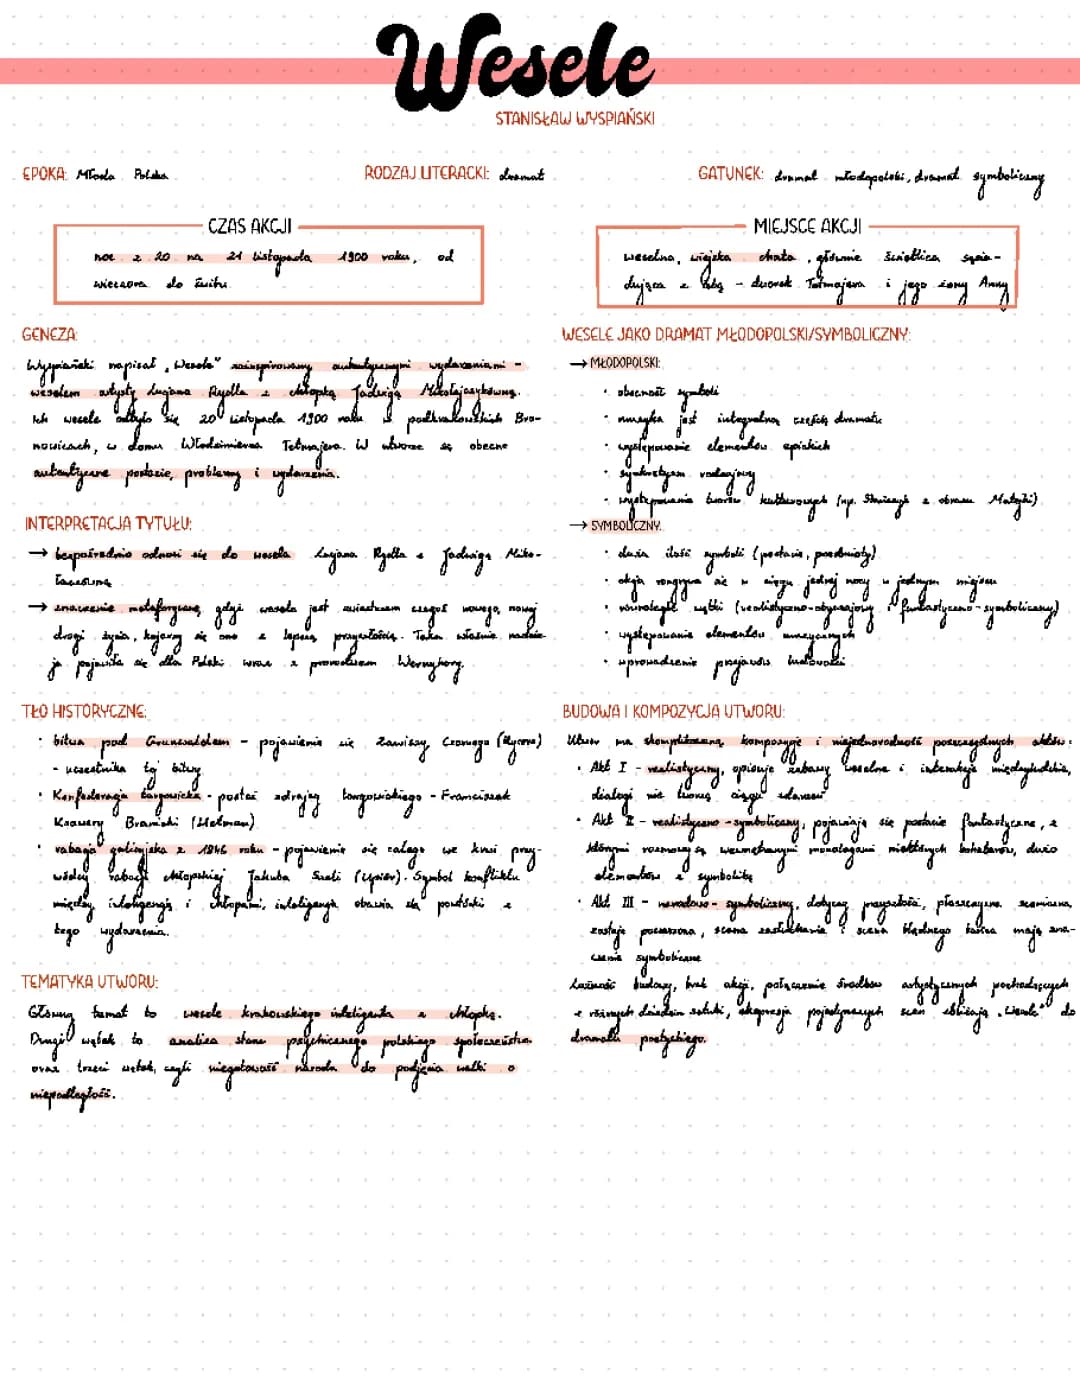 Wesele
STANISŁAW WYSPIAŃSKI
EPOKA: Młoda Polska
RODZAJ LITERACKI: dramat
GATUNEK: dramat młodopolski, dramat symboliczny
CZAS AKCJI
noc z 20 na 21 listopada 1900 roku, od
wieczora do świtu
MIEJSCE AKCJI
weselna, wiejska chata, głównie świetlica sąsia-
dująca z izbą - dworek Tetmajera i jego żony Anny
GENEZA:
Wyspiański napisał „Wesele" zainspirowany autentycznymi wydarzeniami -
weselem artysty Lucjana Rydla z chłopką Jadwigą Mikołajczykówną.
Ich wesele odbyło się 20 listopada 1900 roku w podkrakowskich Bro-
nowicach, w domu Włodzimierza Tetmajera. W utworze są obecne
autentyczne postacie, problemy i wydarzenia.
INTERPRETACJA TYTUŁU:
→ bezpośrednio odnosi się do wesela Lucjana Rydla z Jadwigą Miko-
→ znaczenie metaforyczne, gdyż wesele jest zwiastunem czegoś nowego, nowej
drogi życia, kojarzy się ono z lepszą przyszłością. Taka właśnie nadzie-
ja pojawiła się dla Polski wraz z proroctwem Wernyhory.
TŁO HISTORYCZNE:
• bitwa pod Grunwaldem - pojawienie się Zawiszy Czarnego (Rycerz)
- uczestnika tej bitwy
• Konfederacja targowicka - postać zdrajcy targowickiego - Franciszek
Ksawery Branicki (Hetman)
• rabacja galicyjska z 1846 roku - pojawienie się całego we krwi przy-
wódcy rabacji chłopskiej Jakuba Szeli (Upiór). Symbol konfliktu
między inteligencją i chłopami, inteligencja obawia się powtórki z
tego wydarzenia.
TEMATYKA UTWORU:
Główny temat to wesele krakowskiego inteligenta z chłopką.
Drugi wątek to analiza stanu psychicznego polskiego społeczeństwa
oraz trzeci wątek, czyli niegotowość narodu do podjęcia walki o
niepodległość.
WESELE JAKO DRAMAT MŁODOPOLSKI/SYMBOLICZNY:
→ MŁODOPOLSKI:
• obecność symboli
• muzyka jest integralną częścią dramatu
• występowanie elementów epickich
• synkretyzm rodzajowy
• występowanie tworów kulturowych (np. Stańczyk z obrazu Matejki)
→ SYMBOLICZNY:
• duża ilość symboli (postacie, przedmioty)
• akcja rozgrywa się w ciągu jednej nocy w jednym miejscu
• równoległe wątki (realistyczno-obyczajowy i fantastyczno-symboliczny)
• występowanie elementów muzycznych
• wprowadzenie przejawów ludowości
BUDOWA I KOMPOZYCJA UTWORU:
Utwór ma skomplikowaną kompozycję i niejednorodność poszczególnych aktów:
• Akt I - realistyczny, opisuje zabawy weselne i interakcje międzyludzkie,
dialogi nie tworzą ciągu zdarzeń
• Akt II - realistyczno-symboliczny, pojawiają się postacie fantastyczne, z
którymi rozmowy są wewnętrznymi monologami niektórych bohaterów, dużo
elementów z symboliką
• Akt III - narodowo-symboliczny, dotyczy przyszłości, płaszczyzna sceniczna
zostaje poszerzona, scena zasłuchania i scena błędnego tańca mają zna-
czenie symboliczne
Luźność budowy, brak akcji, połączenie środków artystycznych pochodzących
z różnych dziedzin sztuki, ekspresja pojedynczych scen zbliżają „Wesele" do
dramatu poetyckiego.